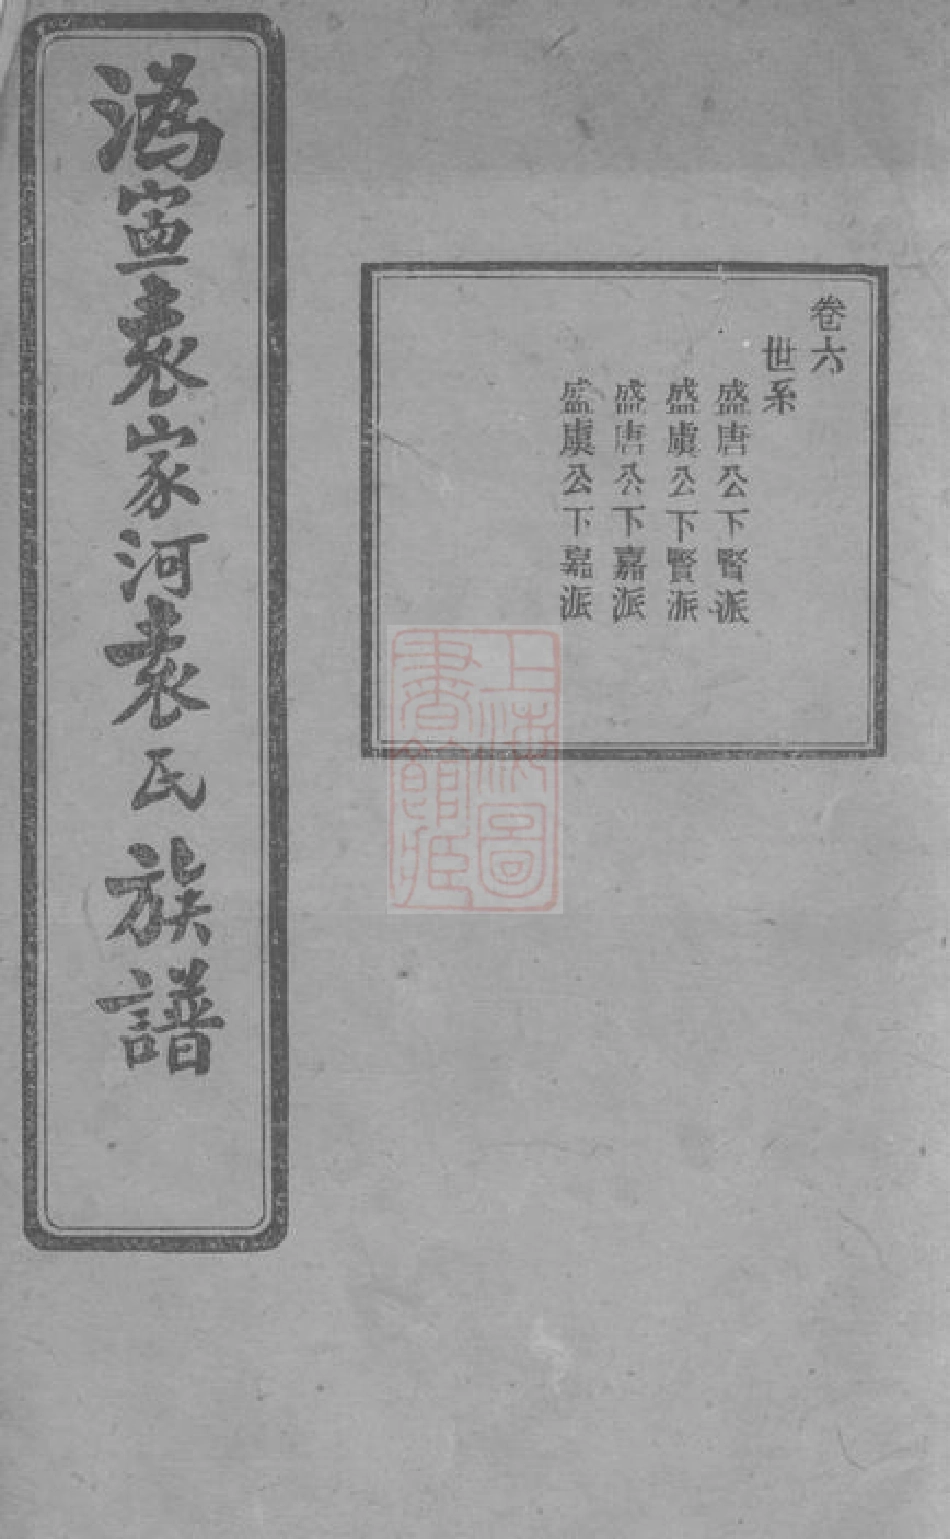 卷六
世系
盛唐公下賢派
盛虞公下賢派
盛唐公下嘉派
盛虞公下嘉派
溈寍袁家河袁氏族譜
上海圖
書館藏